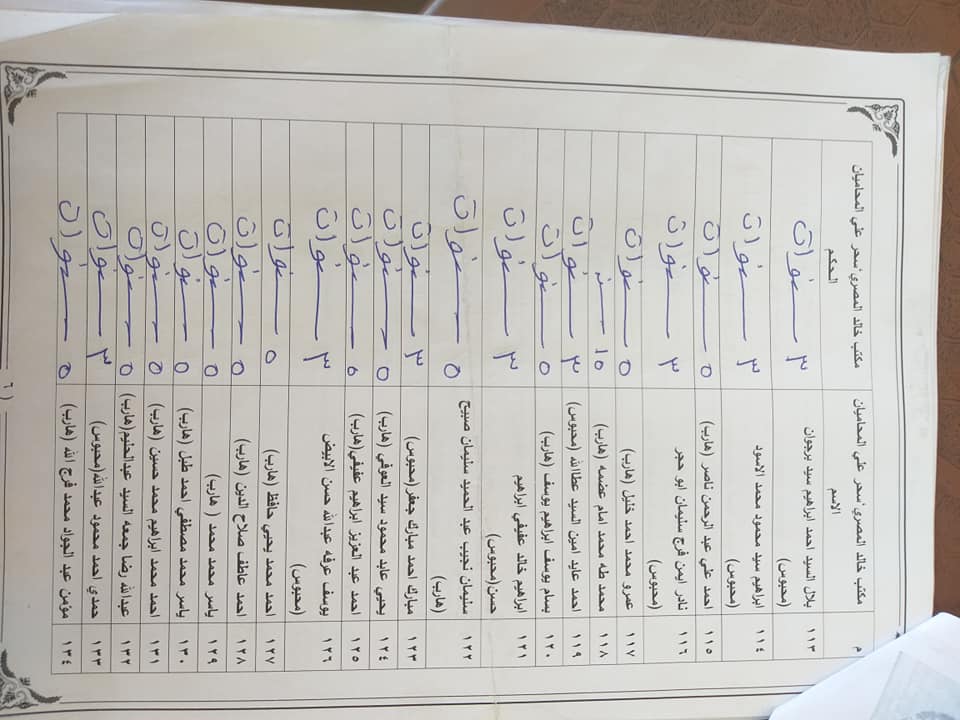 م مكتب خالد المصري /سحر علي المحاميان مكتب خالد المصري /سحر علي المحاميان
الاسم الحكم
١١٣ بلال السيد احمد ابراهيم سيد برجوان ٣ سنوات
(محبوس)
١١٤ ابراهيم سيد محمود محمد الاسود ٣ سنوات
(محبوس)
١١٥ احمد علي عبد الرحمن ناصر (هارب) ٥ سنوات
١١٦ نادر ايمن فرج سليمان ابو حجر ٣ سنوات
(محبوس)
١١٧ عمرو محمد احمد خليل (هارب) ٥ سنوات
١١٨ محمد طه محمد امام عضمه (هارب) ١٥ سنه
١١٩ احمد عايد امين السيد عطاالله (محبوس) ٣ سنوات
١٢٠ بسام يوسف ابراهيم يوسف (هارب) ٥ سنوات
١٢١ ابراهيم خالد عفيفي ابراهيم ٣ سنوات
حسن(محبوس)
١٢٢ سليمان نجيب عبد الحميد سليمان صبيح ٥ سنوات
(هارب)
١٢٣ مبارك احمد مبارك جعفر(محبوس) ٣ سنوات
١٢٤ يحيي عابد محمود سيد العوفي (هارب) ٥ سنوات
١٢٥ احمد عبد العزيز ابراهيم عفيفي(هارب) ٥ سنوات
١٢٦ يوسف عرفه عبدالله حسن الابيض ٣ سنوات
(محبوس)
١٢٧ احمد محمد يحيي حافظ (هارب) ٥ سنوات
١٢٨ احمد عاطف صلاح الدين (هارب) ٥ سنوات
١٢٩ ياسر محمد محمد ( هارب) ٥ سنوات
١٣٠ ياسر محمد مصطفي احمد طبل (هارب) ٥ سنوات
١٣١ احمد محمد ابراهيم محمد حسين (هارب) ٥ سنوات
١٣٢ عبدالله رضا جمعه السيد عبدالحليم(هارب) ٥ سنوات
١٣٣ حمدي احمد محمود عبدالله(محبوس) ٣ سنوات
١٣٤ مؤمن عبد الجواد محمد فرج الله (هارب) ٥ سنوات